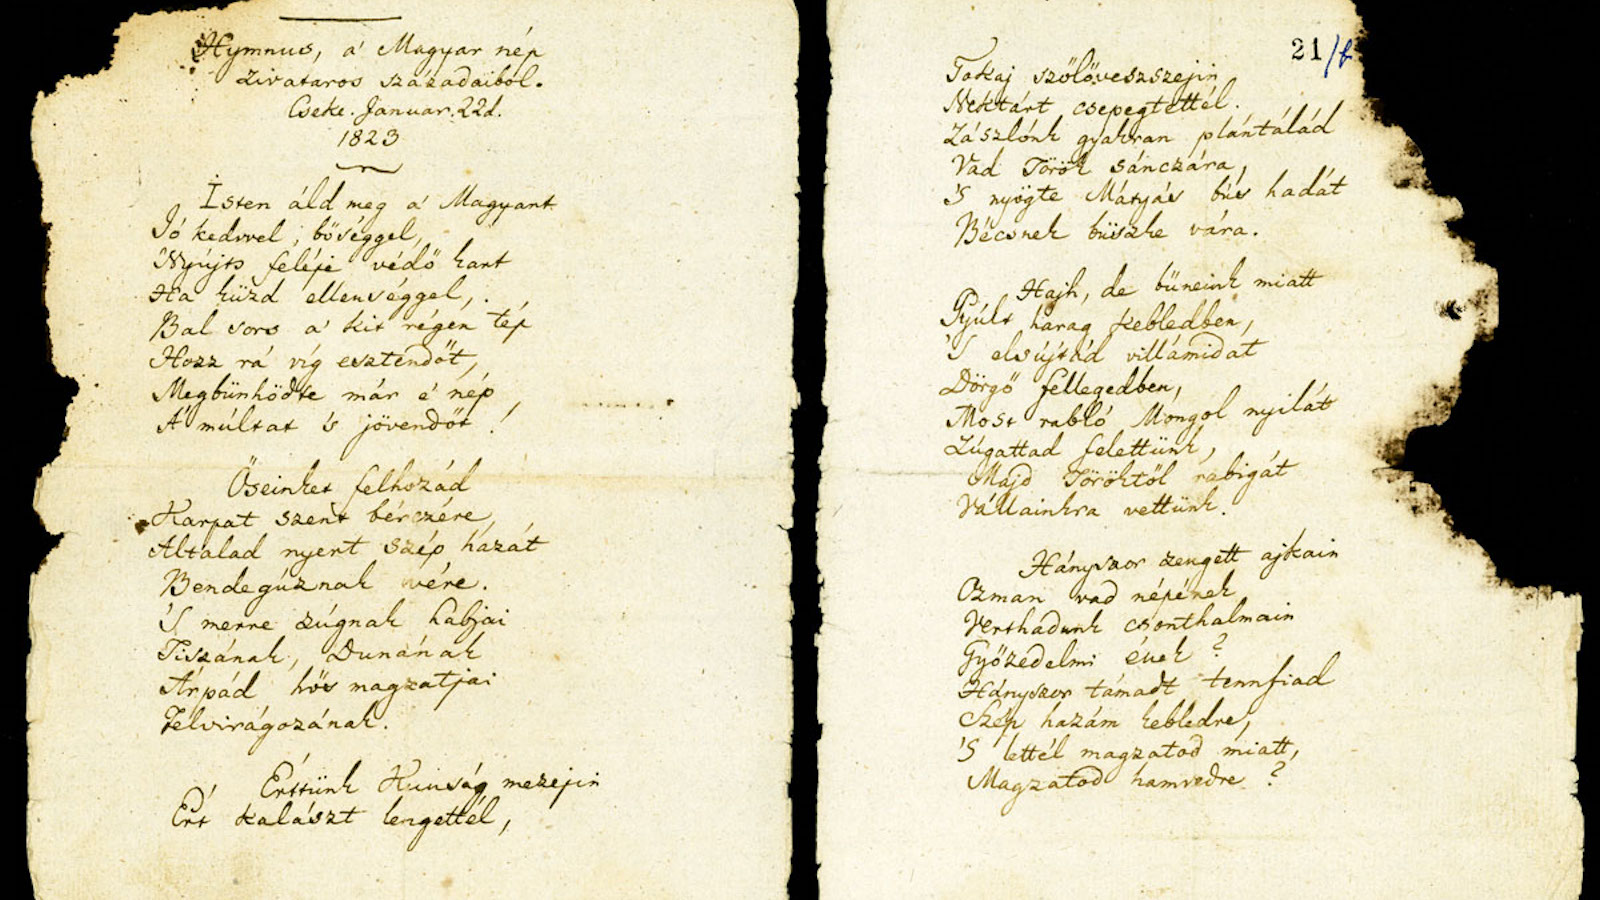 Hymnus, a' Magyar nép
zivataros századaiból.
Cseke. Januar. 22d.
1823
Isten áld meg a' Magyart
Jó kedvvel, bőséggel,
Nyújts feléje védő kart
Ha küzd ellenséggel,
Bal sors a' kit régen tép
Hozz rá víg esztendőt,
Megbünhödte már é nép
A' múltat 's jövendőt!
Őseinket felhozád
Karpat szent bérczére
Altalad nyert szép hazát
Bendegúznak vére.
'S merre zúgnak habjai
Tiszának, Dunának
Árpád hős magzatjai
Felvirágozának.
Értünk Kunság mezejin
Ért kalászt lengettél,
21/b
Tokaj szőlővesszejin
Nektárt csepegtettél.
Zászlónk gyakran plántálád
Vad Török sánczára,
'S nyögte Mátyás bús hadát
Bécsnek büszke vára.
Hajh, de bűneink miatt
Gyúlt harag kebledben,
'S elsújtád villámidat
Dörgő fellegedben,
Most rabló Mongol nyilát
Zúgattad felettünk,
Majd Töröktől rabigát
Vállainkra vettünk.
Hányszor zengett ajkain
Ozman vad népének
Verthadunk csonthalmain
Győzedelmi ének?
Hányszor támadt tennfiad
Szép hazám kebledre,
'S lettél magzatod miatt,
Magzatod hamvedre?